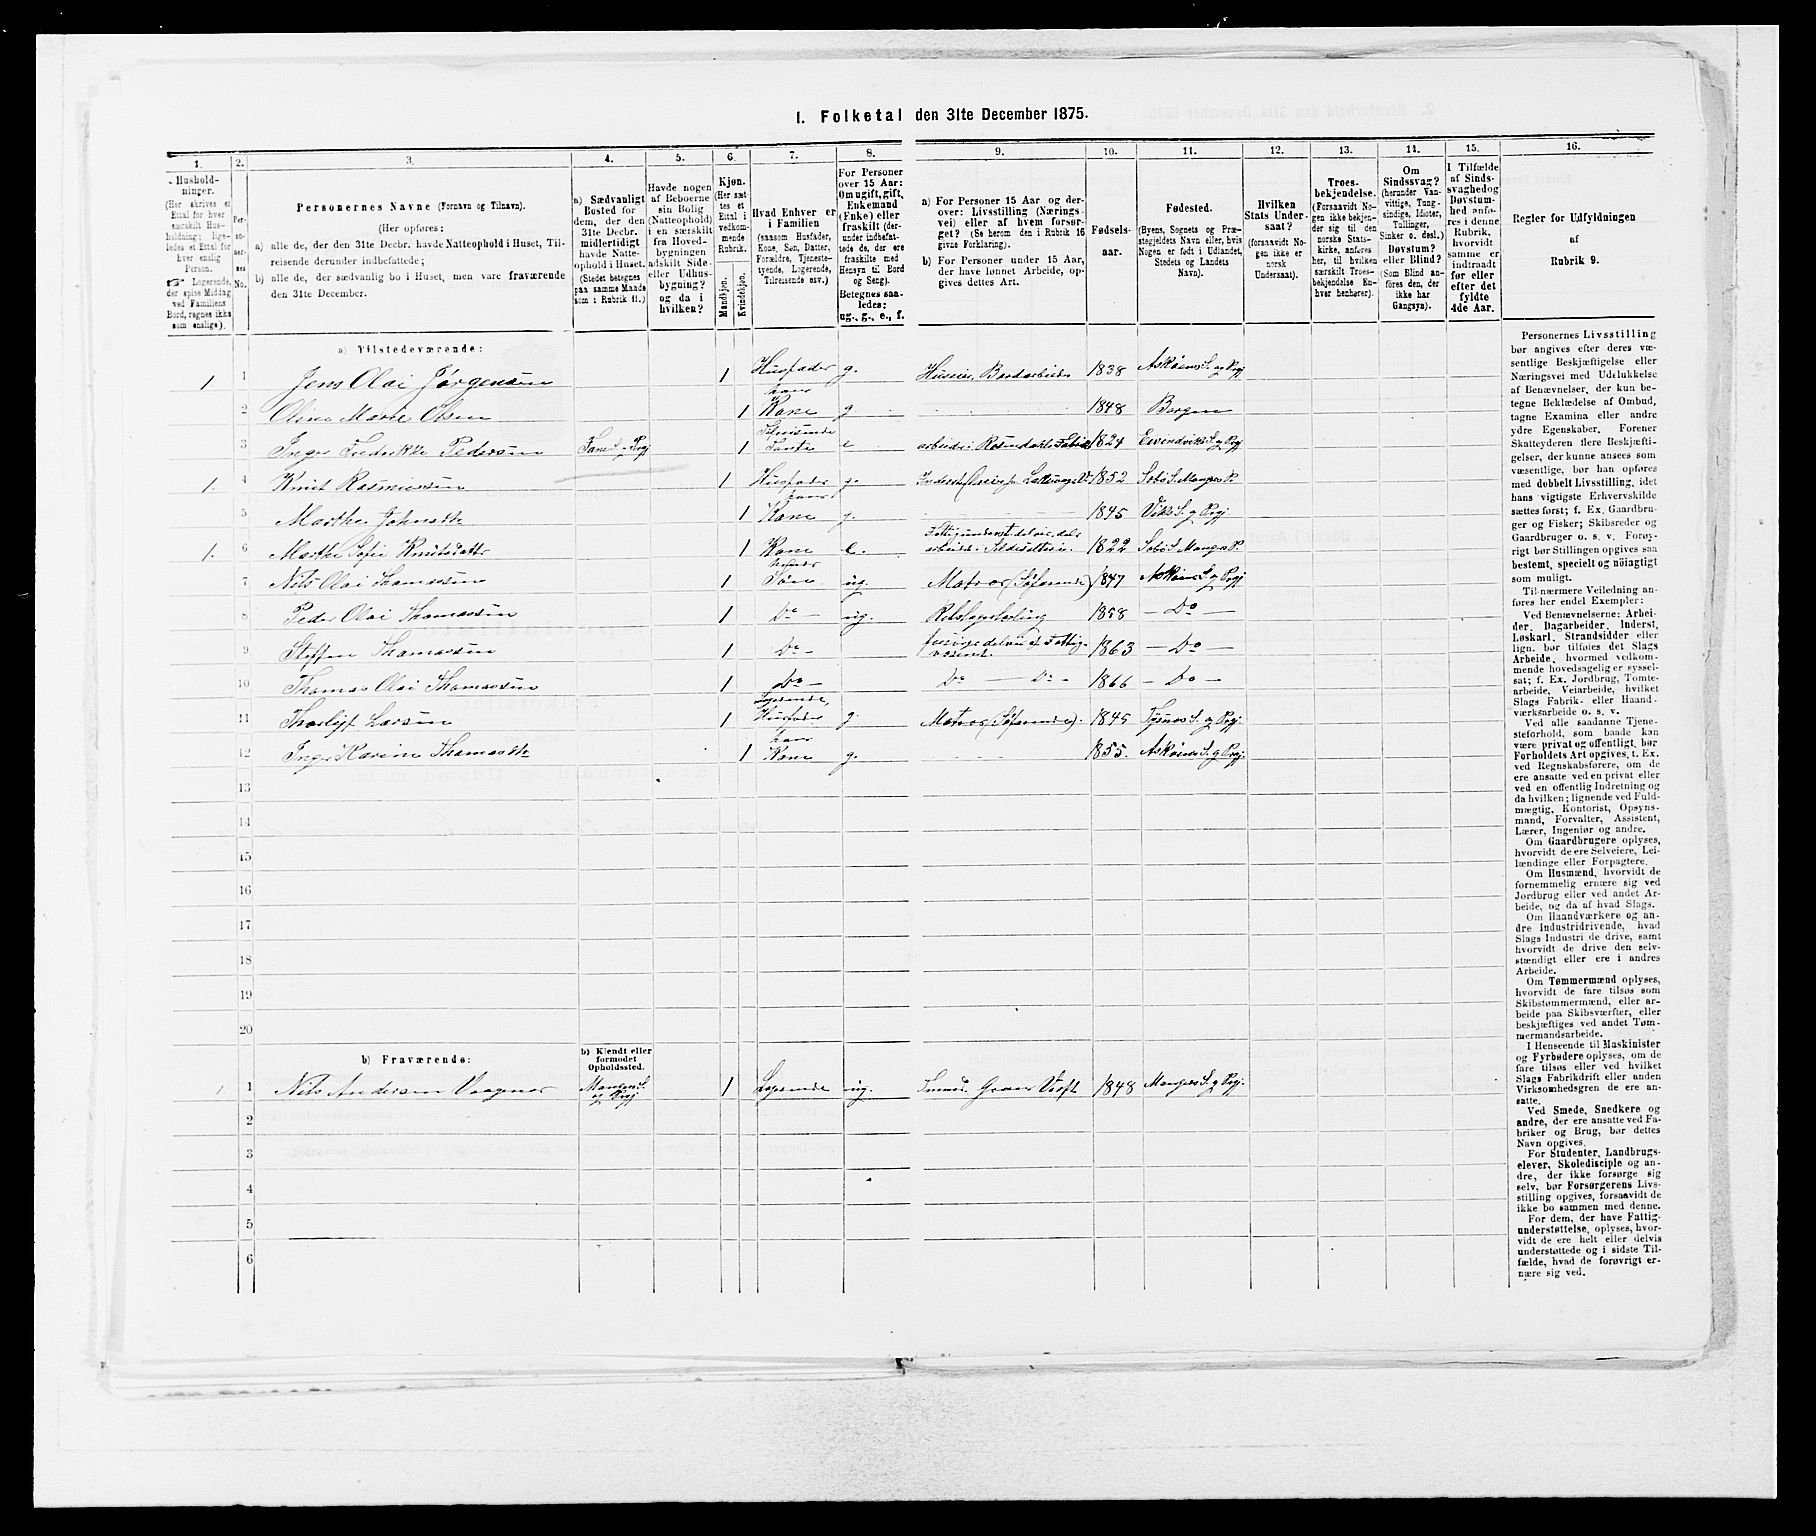 1. Folketal den 31te December 1875.
1. 2. 3. 4. 5. 6. 7. 8. 9. 10. 11. 12. 13. 14. 15. 16.
Hushold-
ninger.
(Her skrives et
Ettal for hver
særskilt Hus-
holdning; lige-
ledes et Ettal for
hver enslig
Person.
☞ Logerende,
der spise Middag
ved Familiens
Bord, regnes ikke
som enslige).
Per-
so-
ner-
nes
No.
Personernes Navne (Fornavn og Tilnavn).
(Her opføres:
a) alle de, der den 31te Decbr. havde Natteophold i Huset, Til-
reisende derunder indbefattede;
b) alle de, der sædvanlig bo i Huset, men vare fraværende
den 31te December.
a) Sædvanligt
Bosted for
dem, der den
31te Decbr.
midlertidigt
havde Natte-
ophold i Huset.
(Stedet betegnes
paa samme Maade
som i Rubrik 11.)
Havde nogen
af Beboerne
sin Bolig
(Natteophold)
i en særskilt
fra Hoved-
bygningen
adskilt Side-
eller Udhus-
bygning?
og da i
hvilken?
Kjøn.
(Her sæt-
tes et
Ettal i
vedkom-
mende
Rubrik.
Mandkjøn.
Kvindekjøn.
Hvad Enhver er
i Familien
(saasom Husfader,
Kone, Søn, Datter,
Forældre, Tjeneste-
tyende, Logerende,
Tilreisende osv.)
For Personer
over 15 Aar:
Om ugift, gift,
Enkemand
(Enke) eller
fraskilt (der-
under indbefat-
tede de, der ere
fraskilte med
Hensyn til Bord
og Seng).
Betegnes saa-
ledes:
ug., g., e., f.
a) For Personer 15 Aar og der-
over: Livsstilling (Nærings-
vei) eller af hvem forsør-
get? (Se herom den i Rubrik 16
givne Forklaring).
b) For Personer under 15 Aar,
der have lønnet Arbeide, op-
gives dettes Art.
Fødsels-
aar.
Fødested.
(Byens, Sognets og Præ-
stegjeldets Navn eller, hvis
Nogen er født i Udlandet,
Stedets og Landets
Navn).
Hvilken
Stats Under-
saat?
(forsaavidt No-
gen ikke er
norsk
Undersaat).
Troes-
bekjendelse.
(Forsaavidt No-
gen ikke bekjen-
der sig til den
norske Stats-
kirke, anføres
her, til hvilken
særskilt Troes-
bekjendelse En-
hver henhører).
Om
Sindssvag?
(herunder Van-
vittige, Tung-
sindige, Idioter,
Tullinger,
Sinker o. desl.)
Døvstum?
eller Blind?
(Som Blind an-
føres den, der
ikke har
Gangsyn).
I Tilfælde
af Sinds-
svaghed og
Døvstum-
hed anfø-
res i denne
Rubrik,
hvorvidt
samme er
indtraadt
før eller
efter det
fyldte
4de Aar.
Regler for Udfyldningen
af
Rubrik 9.
a) Tilstedeværende:
1. 1 Jens Olai Jørgensen 1 Husfader g. Huseier, 1838 Askøens S. og Prgj
2 Marie Olsen 1 hans Kone g. 1848 Bergen
3 Inger Fredrikke Pedersen Fane S. og Prgj 1 Tante e 1824 Evindviks S. og Prgj
1. 4 Knut Rasmussen 1 Husfader g. 1852 Sebø S. Mangers P.
5 Marthe Johnsdtr 1 hans Kone g. 1845 Viks S. og Prgj.
1. 6 Marthe Sofie Knutsdatter 1 Kone e. 1822 Sebø S. Mangers P.
7 Nils Olai Thomassen 1 hendes Søn ug. Matros (Søfarende) 1847 Askøens S. og Prgj
8 Peder Olai Thomassen 1 Do ug. 1858 Do
9 Steffen Thomassen 1 Do 1863 Do
10 Thomas Olai Thomassen 1 do Do Do 1866 Do
11 Thorleif Larsen 1 Logerende, Husfader g. Matros (Søfarende). 1845 Tysnes S. og Prgj.
12 Inger Karine Thomasdtr 1 hans Kone g. 1855. Askøens S. og Prgj.
13
14
15
16
17
18
19
20
b) Fraværende:
b) Kjendt eller
formodet
Opholdssted.
1 1 Nils Andersen Vaagnes Mangers S. og Prgj 1 Logerende ug. 1848 Mangers S. og Prgj.
2
3
4
5
6
Personernes Livsstilling
bør angives efter deres væ-
sentlige Beskjæftigelse eller
Næringsvei med Udelukkelse
af Benævnelser, der kun be-
tegne Beklædelse af Ombud,
tagne Examina eller andre
ydre Egenskaber. Forener
Skatteyderen flere Beskjæfti-
gelser, der kunne ansees som
væsentlige, bør han opføres
med dobbelt Livsstilling, idet
hans vigtigste Erhvervskilde
sættes først; f. Ex. Gaardbru-
ger og Fisker; Skibsreder og
Gaardbruger o. s. v. Forøv-
rigt bør Stillingen opgives saa
bestemt, specielt og nöiagtigt
som muligt.
Til nærmere Veiledning an-
føres her endel Exempler:
Ved Benævnelserne: Arbei-
der, Dagarbeider, Inderst,
Løskarl, Strandsidder eller
lign. bør tilføies det Slags
Arbeide, hvormed vedkom-
mende hovedsagelig er syssel-
sat; f. Ex. Jordbrug, Tomte-
arbeide, Veiarbeide, hvilket
Slags Fabrik- eller Haand-
værksarbeide o. s. v.
Ved alle saadanne Tjene-
steforhold, som baade kan
være privat og offentligt, bør
Forholdets Art opgives, t. Ex.
ved Regnskabsførere, om de
ere ansatte ved en privat eller
ved en offentlig Indretning og
da hvilken; lignende ved Fuld-
mægtig, Kontorist, Opsyns-
mand, Forvalter, Assistent,
Lærer, Ingeniør og andre.
Om Gaardbrugere oplyses,
hvorvidt de ere Selveiere, Lei-
lændinge eller Forpagtere.
Om Husmænd, hvorvidt de
fornemmelig ernære sig ved
Jordbrug eller ved andet Ar-
beide, og da af hvad Slags.
Om Haandværkere og an-
dre Industridrivende, hvad
Slags Industri de drive, samt
hvorvidt de drive den selv-
stændigt eller ere i andres
Arbeide.
Om Tømmermænd oplyses,
hvorvidt de fare tilsøs som
Skibstømmermænd, eller ar-
beide paa Skibsværfter, eller
beskjæftiges ved andet Tøm-
mermandsarbeide.
I Henseende til Maskinister
og Fyrbødere oplyses, om de
fare tilsøs eller ved hvilket
Slags Fabrikdrift eller anden
Virksomhedsgren de ere an-
satte.
Ved Smede, Snedkere og
andre, der ere ansatte ved Fa-
briker og Brug, bør dettes
Navn opgives.
For Studenter, Landbrugs-
elever, Skoledisciple og an-
dre, der ikke forsørge sig
selv, bør Forsørgerens Livs-
stilling opgives, forsaavidt de
ikke bo sammen med denne.
For dem, der have Fattig-
understøttelse, oplyses, hvor-
vidt de ere helt eller delvis
understøttede og i sidste Til-
fælde, hvad de forøvrigt er-
nære sig ved.